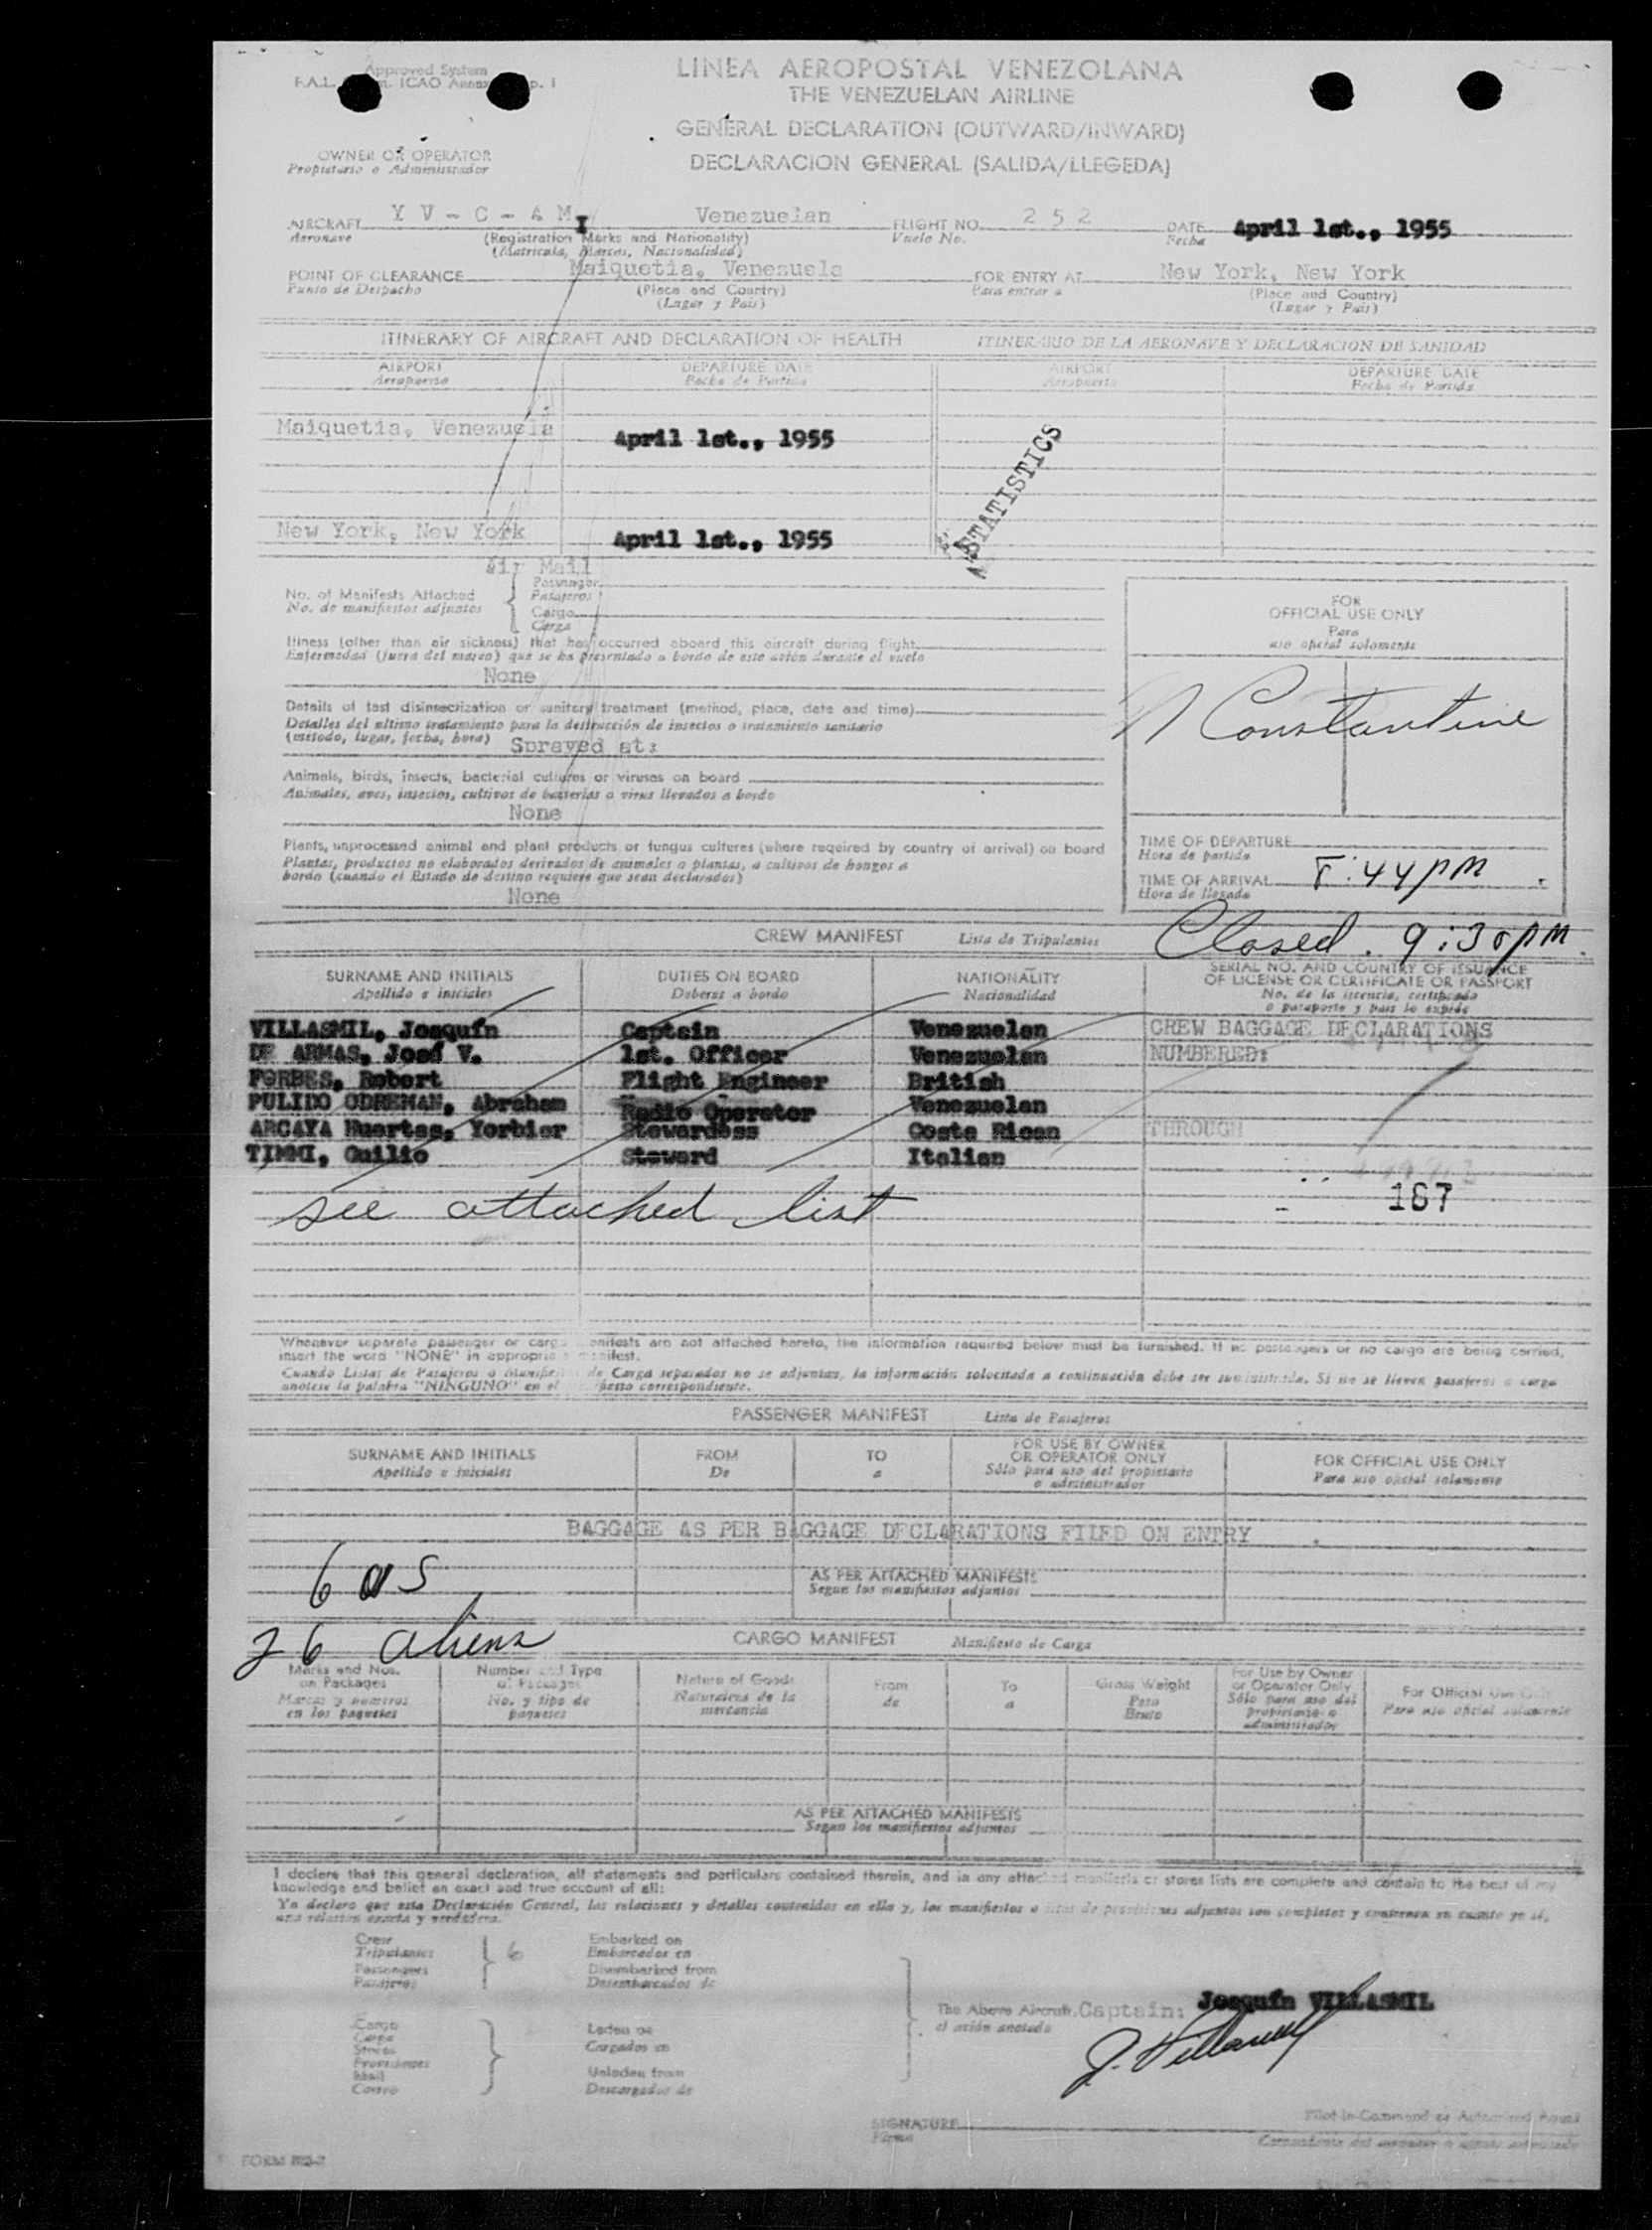 Approved System
F.A.L. ICAO Annex p. 1
LINEA AEROPOSTAL VENEZOLANA
THE VENEZUELAN AIRLINE
GENERAL DECLARATION (OUTWARD/INWARD)
DECLARACION GENERAL (SALIDA/LLEGEDA)
OWNER OR OPERATOR
Propietario o Administrador
AIRCRAFT YV-C-AMI Venezuelan FLIGHT NO. 252 DATE April 1st., 1955
Aeronave (Registration Marks and Nationality) Vuelo No. Fecha
(Matricula, Marcas, Nacionalidad)
POINT OF CLEARANCE Maiquetia, Venezuela FOR ENTRY AT New York, New York
Punto de Despacho (Place and Country) Para entrar a (Place and Country)
(Lugar y Pais) (Lugar y Pais)
ITINERARY OF AIRCRAFT AND DECLARATION OF HEALTH ITINERARIO DE LA AERONAVE Y DECLARACION DE SANIDAD
AIRPORT DEPARTURE DATE AIRPORT DEPARTURE DATE
Aeropuerto Fecha de Partida Aeropuerto Fecha de Partida
Maiquetia, Venezuela April 1st., 1955
STATISTICS
New York, New York April 1st., 1955
Air Mail
No. of Manifests Attached Passenger
No. de manifiestos adjuntos Pasajeros
Cargo
Carga
FOR
OFFICIAL USE ONLY
Para
uso oficial solamente
Illness (other than air sickness) that has occurred aboard this aircraft during flight
Enfermedad (fuera del mareo) que se ha presentado a bordo de este avión durante el vuelo
None
Constantine
Details of last disinsectization or sanitary treatment (method, place, date and time)
Detalles del ultimo tratamiento para la destrucción de insectos o tratamiento sanitario
(método, lugar, fecha, hora) Sprayed at:
Animals, birds, insects, bacterial cultures or viruses on board
Animales, aves, insectos, cultivos de bacterias o virus llevados a bordo
None
Plants, unprocessed animal and plant products or fungus cultures (where required by country of arrival) on board
Plantas, productos no elaborados derivados de animales o plantas, o cultivos de hongos a
bordo (cuando el Estado de destino requiere que sean declarados)
None
TIME OF DEPARTURE
Hora de partida
TIME OF ARRIVAL 8:44 PM
Hora de llegada
Closed. 9:30 PM.
CREW MANIFEST Lista de Tripulantes
SURNAME AND INITIALS DUTIES ON BOARD NATIONALITY SERIAL NO. AND COUNTRY OF ISSUANCE
OF LICENSE OR CERTIFICATE OR PASSPORT
Apellido e iniciales Deberes a bordo Nacionalidad No. de la licencia, certificado
o pasaporte y pais lo expide
VILLASMIL, Joaquín Captain Venezuelan CREW BAGGAGE DECLARATIONS
DE ARMAS, José V. 1st. Officer Venezuelan NUMBERED:
FORBES, Robert Flight Engineer British
PULIDO ODREMAN, Abraham Radio Operator Venezuelan
ARCAYA Huertas, Yorbier Stewardess Costa Rican THROUGH
TIMMI, Guilio Steward Italian
187
see attached list
Whenever separate passenger or cargo manifests are not attached hereto, the information required below must be furnished. If no passengers or no cargo are being carried,
insert the word "NONE" in appropriate manifest.
Cuando Listas de Pasajeros o Manifiestos de Carga separados no se adjuntan, la información solicitada a continuación debe ser suministrada. Si no se llevan pasajeros o carga
anótese la palabra "NINGUNO" en el correspondiente.
PASSENGER MANIFEST Lista de Pasajeros
SURNAME AND INITIALS FROM TO FOR USE BY OWNER
OR OPERATOR ONLY FOR OFFICIAL USE ONLY
Apellido e iniciales De a Sólo para uso del propietario
o administrador Para uso oficial solamente
BAGGAGE AS PER BAGGAGE DECLARATIONS FILED ON ENTRY
6 US
AS PER ATTACHED MANIFESTS
Segun los manifiestos adjuntos
26 aliens
CARGO MANIFEST Manifiesto de Carga
Marks and Nos.
on Packages
Marcas y numeros
en los paquetes
Number and Type
of Packages
No. y tipo de
paquetes
Nature of Goods
Naturaleza de la
mercancia
From
de
To
a
Gross Weight
Peso
Bruto
For Use by Owner
or Operator Only
Sólo para uso del
propietario o
administrador
For Official Use Only
Para uso oficial solamente
AS PER ATTACHED MANIFESTS
Segun los manifiestos adjuntos
I declare that this general declaration, all statements and particulars contained therein, and in any attached manifests or stores lists are complete and contain to the best of my
knowledge and belief an exact and true account of all:
Yo declaro que esta Declaración General, las relaciones y detalles contenidos en ella y, los manifiestos o listas de provisiones adjuntos son completos y contienen en cuanto yo sé,
una relación exacta y verdadera.
Crew
Tripulantes
Passengers
Pasajeros
6
Embarked on
Embarcados en
Disembarked from
Desembarcados de
Cargo
Carga
Stores
Provisiones
Mail
Correo
Laden on
Cargados en
Unladen from
Descargados de
The Above Aircraft. Captain: Joaquín VILLASMIL
el avión anotado
J. Villasmil
SIGNATURE
Firma
Pilot-in-Command or Authorized Agent